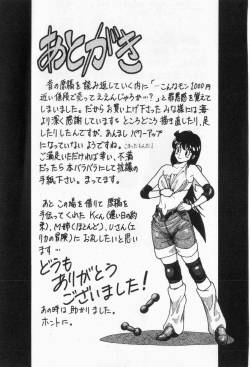 あとがき
昔の原稿を読み返していく内に「…こんなモン1000円
近い値段で売ってええんじゃろか…?」と罪悪感を覚えて
しまいました。だからお買い上げ下さったみな様には海
より深く感謝していますところどころ描き直したり、足し
たりしたんですが、あんましパワーアップ
になっていないようですね。
ご満足いただければ幸い、不満
だったら本バラバラにして抗議の
手紙下さい。まってます。
あとこの場を借りて原稿を
手伝ってくれたKくん(遠い日の約
束)、M姉(ほとんど)、Uさん(エ
リカの冒険)にお礼したいと思い
ます…
どうも
ありがとう
ございました!
あの時は助かりました。
ホントに。